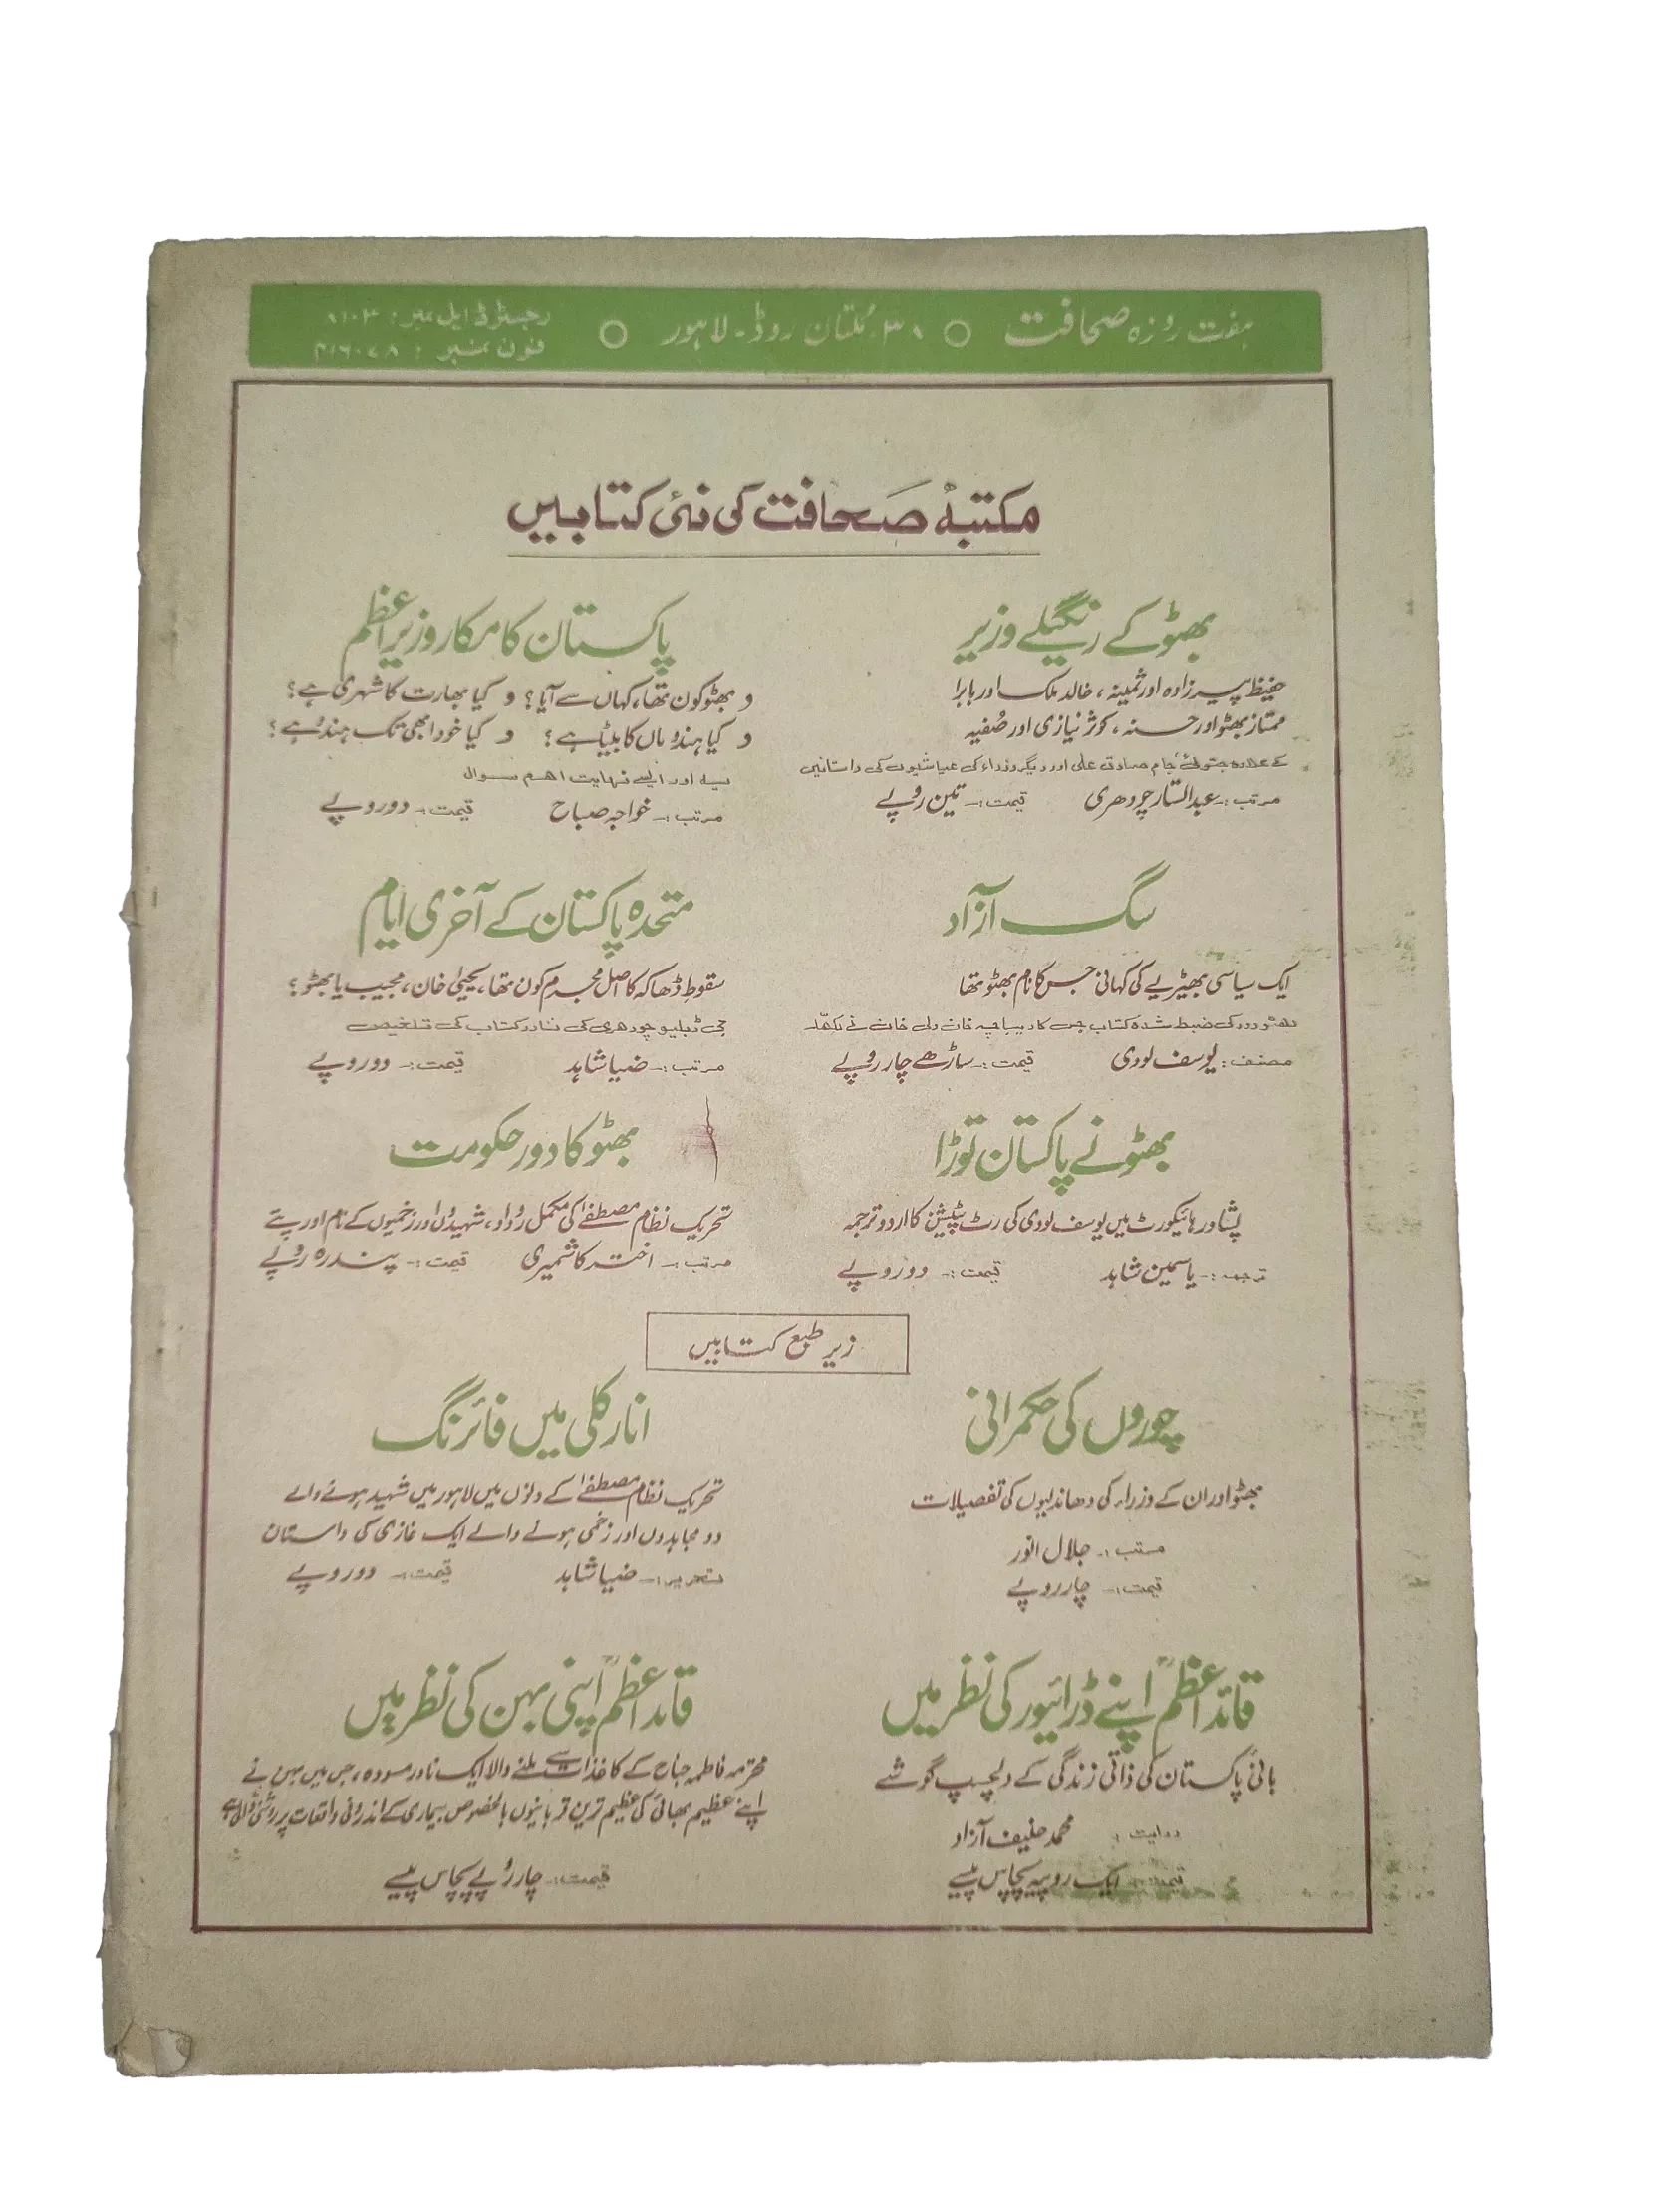 ہفت روزہ صحافت ○ ۳۸۔ مُلتان روڈ۔ لاہور ○
رجسٹرڈ ایل نمبر: ۸۱۰۳
فون نمبر:
مکتبۂ صحافت کی نئی کتابیں
بھٹو کے رنگیلے وزیر
حفیظ پیرزادہ اور ثمینہ، خالد ملک اور بابرا
ممتاز بھٹو اور حسنہ، کوثر نیازی اور صُفیہ
کے علاوہ جتوئی، جام صادق علی اور دیگر وزداء کی عیاشیوں کی داستانیں
مرتب :۔ عبدالستار چودھری قیمت :۔ تین روپے
پاکستان کا مکار وزیراعظم
و بھٹو کون تھا، کہاں سے آیا؟ و کیا بھارت کا شہری ہے؟
و کیا ہندو ماں کا بیٹا ہے؟ و کیا خود ابھی تک ہندُو ہے؟
یہ اور ایسے نہایت اہم سوال
مرتب :۔ خواجہ صباح قیمت :۔ دو روپے
سگ آزاد
ایک سیاسی بھیڑیے کی کہانی جس کا نام بھٹو تھا
بھٹو دور کی ضبط شدہ کتاب جس کا دیباچہ خان ولی خان نے لکھا۔
مصنف : یوسف لودی قیمت :۔ ساڑھے چار روپے
متحدہ پاکستان کے آخری ایام
سقوطِ ڈھاکہ کا اصل مجرم کون تھا، یحییٰ خان، مجیب یا بھٹو؟
جی ڈبلیو چودھری کی نادر کتاب کی تلخیص
مرتب :۔ ضیا شاہد قیمت :۔ دو روپے
بھٹو نے پاکستان توڑا
پشاور ہائیکورٹ میں یوسف لودی کی رٹ پٹیشن کا اردو ترجمہ
ترجمہ :۔ یاسمین شاہد قیمت :۔ دو روپے
بھٹو کا دور حکومت
تحریک نظام مصطفےٰ کی مکمل رُوداد، شہیدوں اور زخمیوں کے نام اور پتے
مرتب :۔ اختر کاشمیری قیمت :۔ پندرہ روپے
زیر طبع کتابیں
چوروں کی حکمرانی
بھٹو اور ان کے وزراء کی دھاندلیوں کی تفصیلات
مرتب :۔ جلال انور
قیمت :۔ چار روپے
انارکلی میں فائرنگ
تحریک نظام مصطفےٰ کے دنوں میں لاہور میں شہید ہونے والے
دو مجاہدوں اور زخمی ہونے والے ایک غازی کی داستان
تحریر :۔ ضیا شاہد قیمت :۔ دو روپے
قائداعظمؒ اپنے ڈرائیور کی نظر میں
بانیٔ پاکستان کی ذاتی زندگی کے دلچسپ گوشے
روایت : محمد حنیف آزاد
قیمت :۔ ایک روپیہ پچاس پیسے
قائداعظمؒ اپنی بہن کی نظر میں
محترمہ فاطمہ جناح کے کاغذات سے ملنے والا ایک نادر مسودہ، جس میں بہن نے
اپنے عظیم بھائی کی عظیم ترین قربانیوں بالخصوص بیماری کے اندرونی واقعات پر روشنی ڈالی ہے
قیمت :۔ چار روپے پچاس پیسے